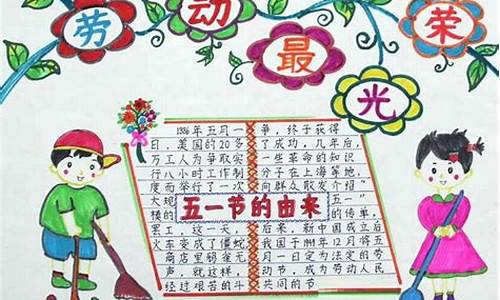 劳动最光荣
五一节的由来
1886年五月一
日,美国的20多
万工人为争取实
行八小时工作制
度而举行了一次
大
模的
罢工,这一天
火车变成了僵蛇
商店里鸦雀无
声,就这样,
经过艰苦的斗
争,终于获得
了成功,几年后,
一些革命的知识
分子在上海等地,
向群众散发介绍
五一"
的传单,
后来,新中国成立后
我国于1949年12月将五
月一日定为法定的劳
动节,成为劳动人民
共同的节